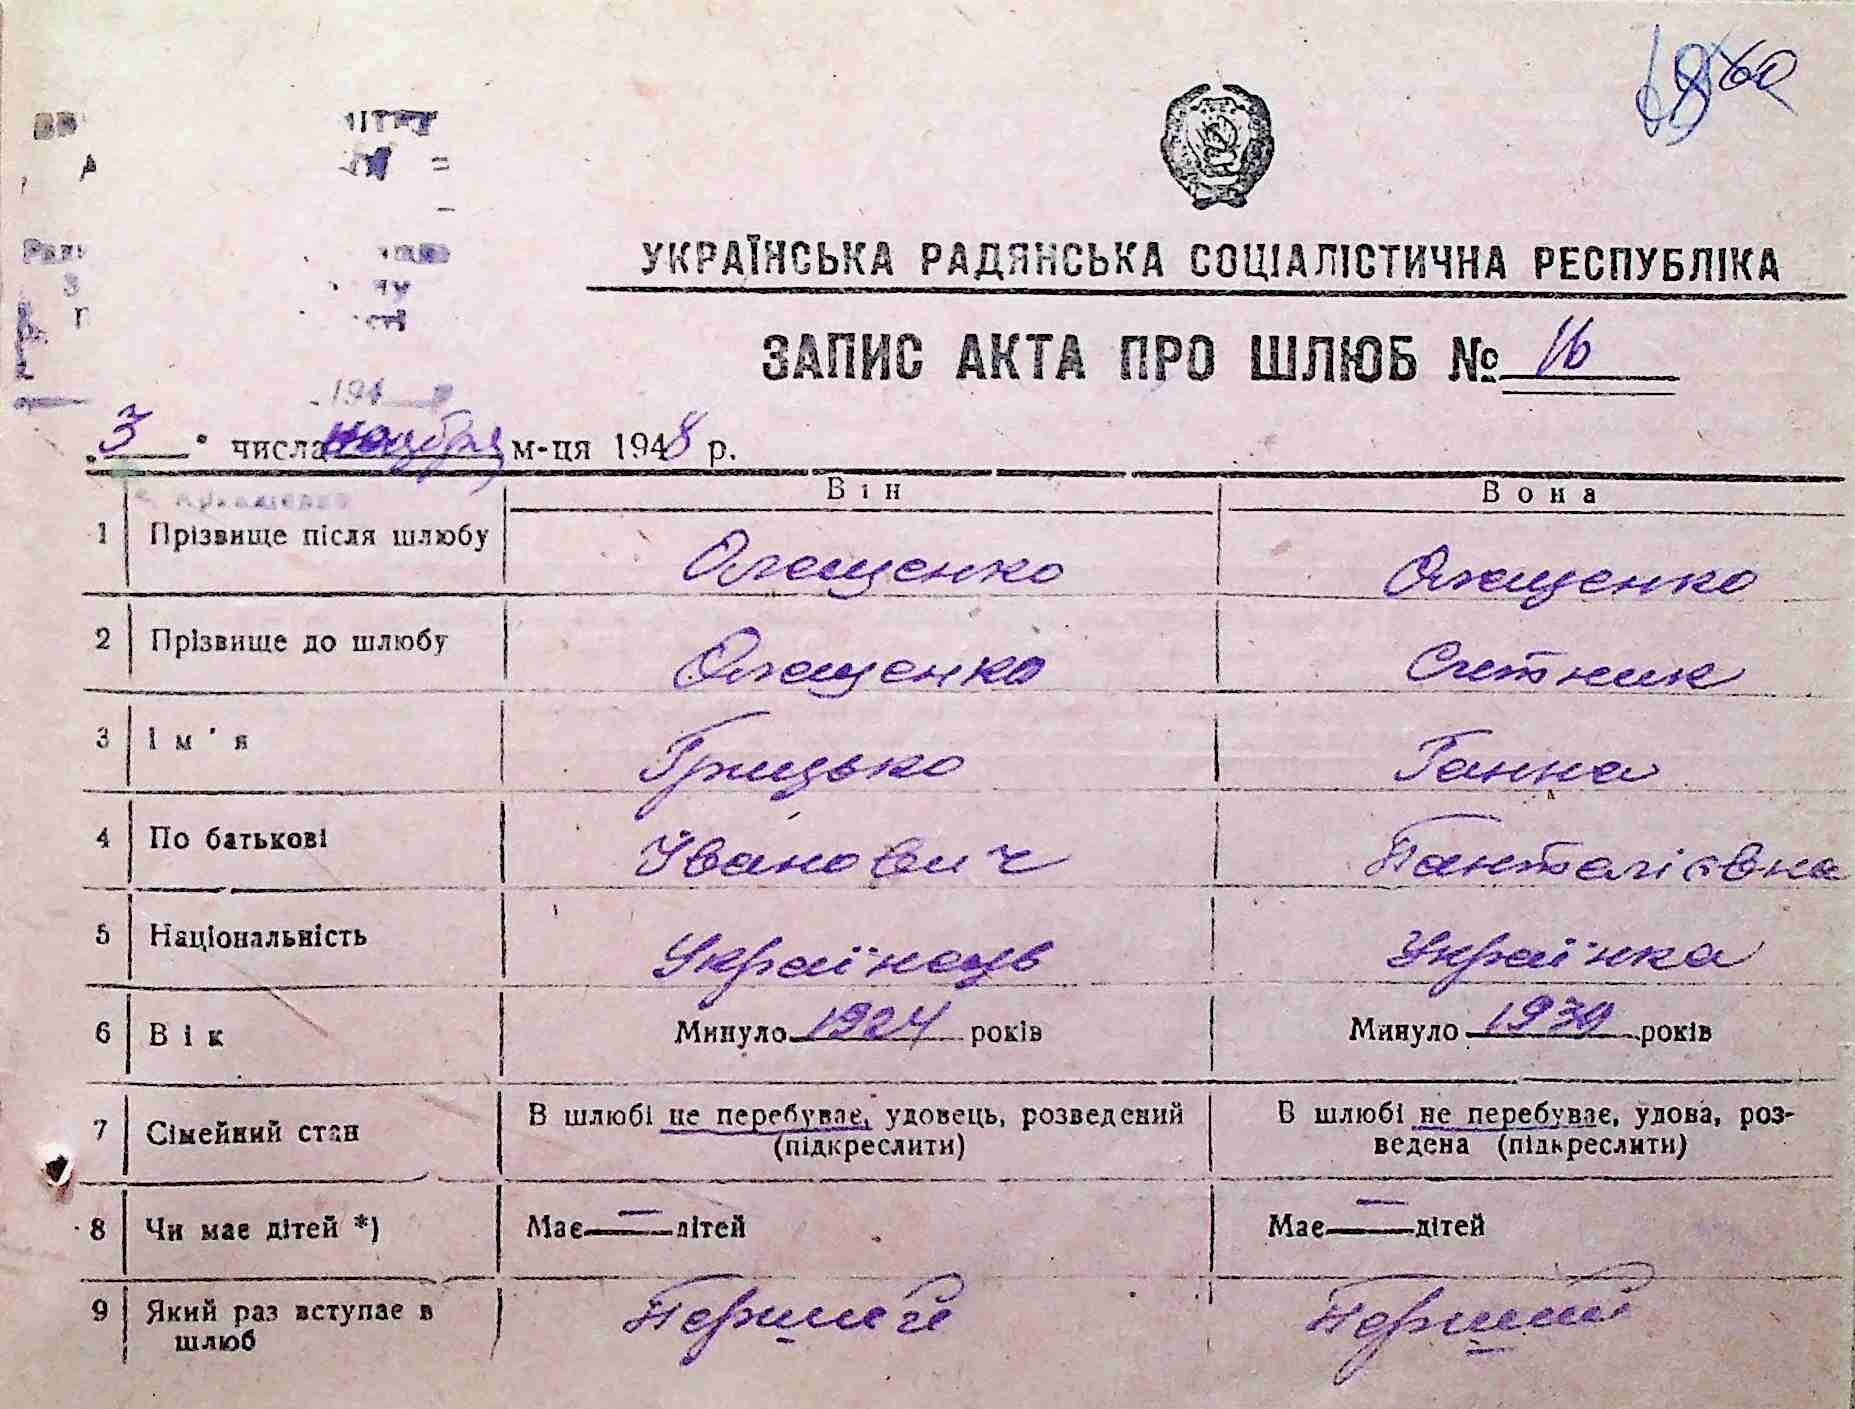 УКРАЇНСЬКА РАДЯНСЬКА СОЦІАЛІСТИЧНА РЕСПУБЛІКА
ЗАПИС АКТА ПРО ШЛЮБ № 16
3 числа ноября м-ця 1948 р.
Він Вона
1 Прізвище після шлюбу Олещенко Олещенко
2 Прізвище до шлюбу Олещенко Ситник
3 Ім'я Грицько Ганна
4 По батькові Іванович Панталіївна
5 Національність Українець Українка
6 Вік Минуло 1924 років Минуло 1930 років
7 Сімейний стан В шлюбі не перебуває, удовець, розведений (підкреслити) В шлюбі не перебуває, удова, роз-
ведена (підкреслити)
8 Чи має дітей *) Має — дітей Має — дітей
9 Який раз вступає в шлюб Перший Перший